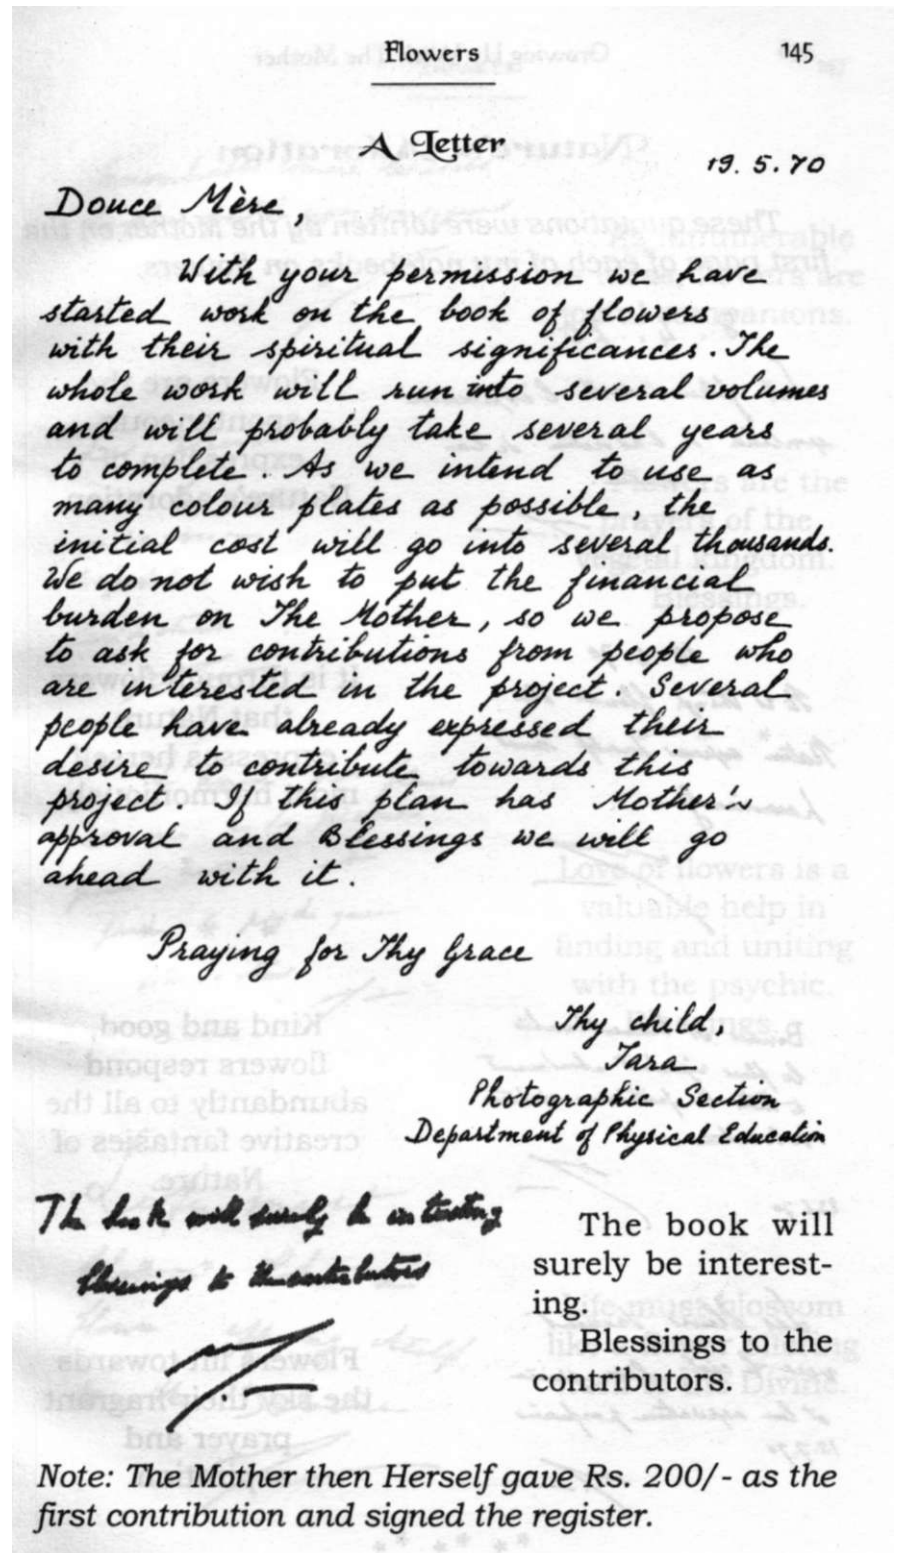 Flowers 145
A Letter
19. 5. 70
Douce Mère,
With your permission we have
started work on the book of flowers
with their spiritual significances. The
whole work will run into several volumes
and will probably take several years
to complete. As we intend to use as
many colour plates as possible, the
initial cost will go into several thousands.
We do not wish to put the financial
burden on The Mother, so we propose
to ask for contributions from people who
are interested in the project. Several
people have already expressed their
desire to contribute towards this
project. If this plan has Mother's
approval and Blessings we will go
ahead with it.
Praying for Thy Grace
Thy child,
Tara
Photographic Section
Department of Physical Education
The book will surely be interesting
blessings to the contributors
The book will
surely be interest-
ing.
Blessings to the
contributors.
Note: The Mother then Herself gave Rs. 200/- as the
first contribution and signed the register.